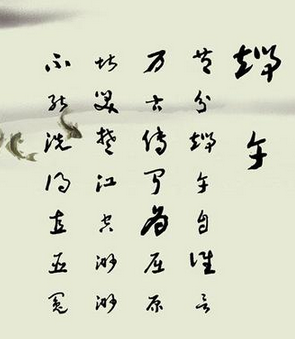 端午
节分端午自谁言
万古传闻为屈原
堪笑楚江空渺渺
不能洗得直臣冤